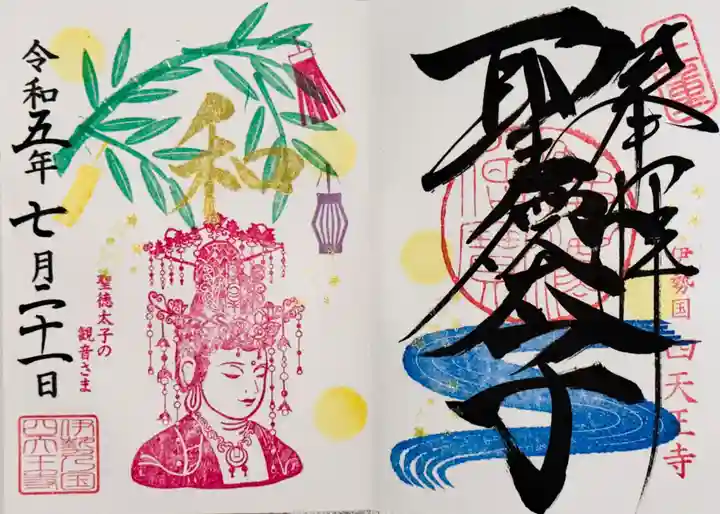 奉拝
聖徳太子
伊勢国
四天王寺
和
令和五年七月二十一日
聖徳太子の
観音さま